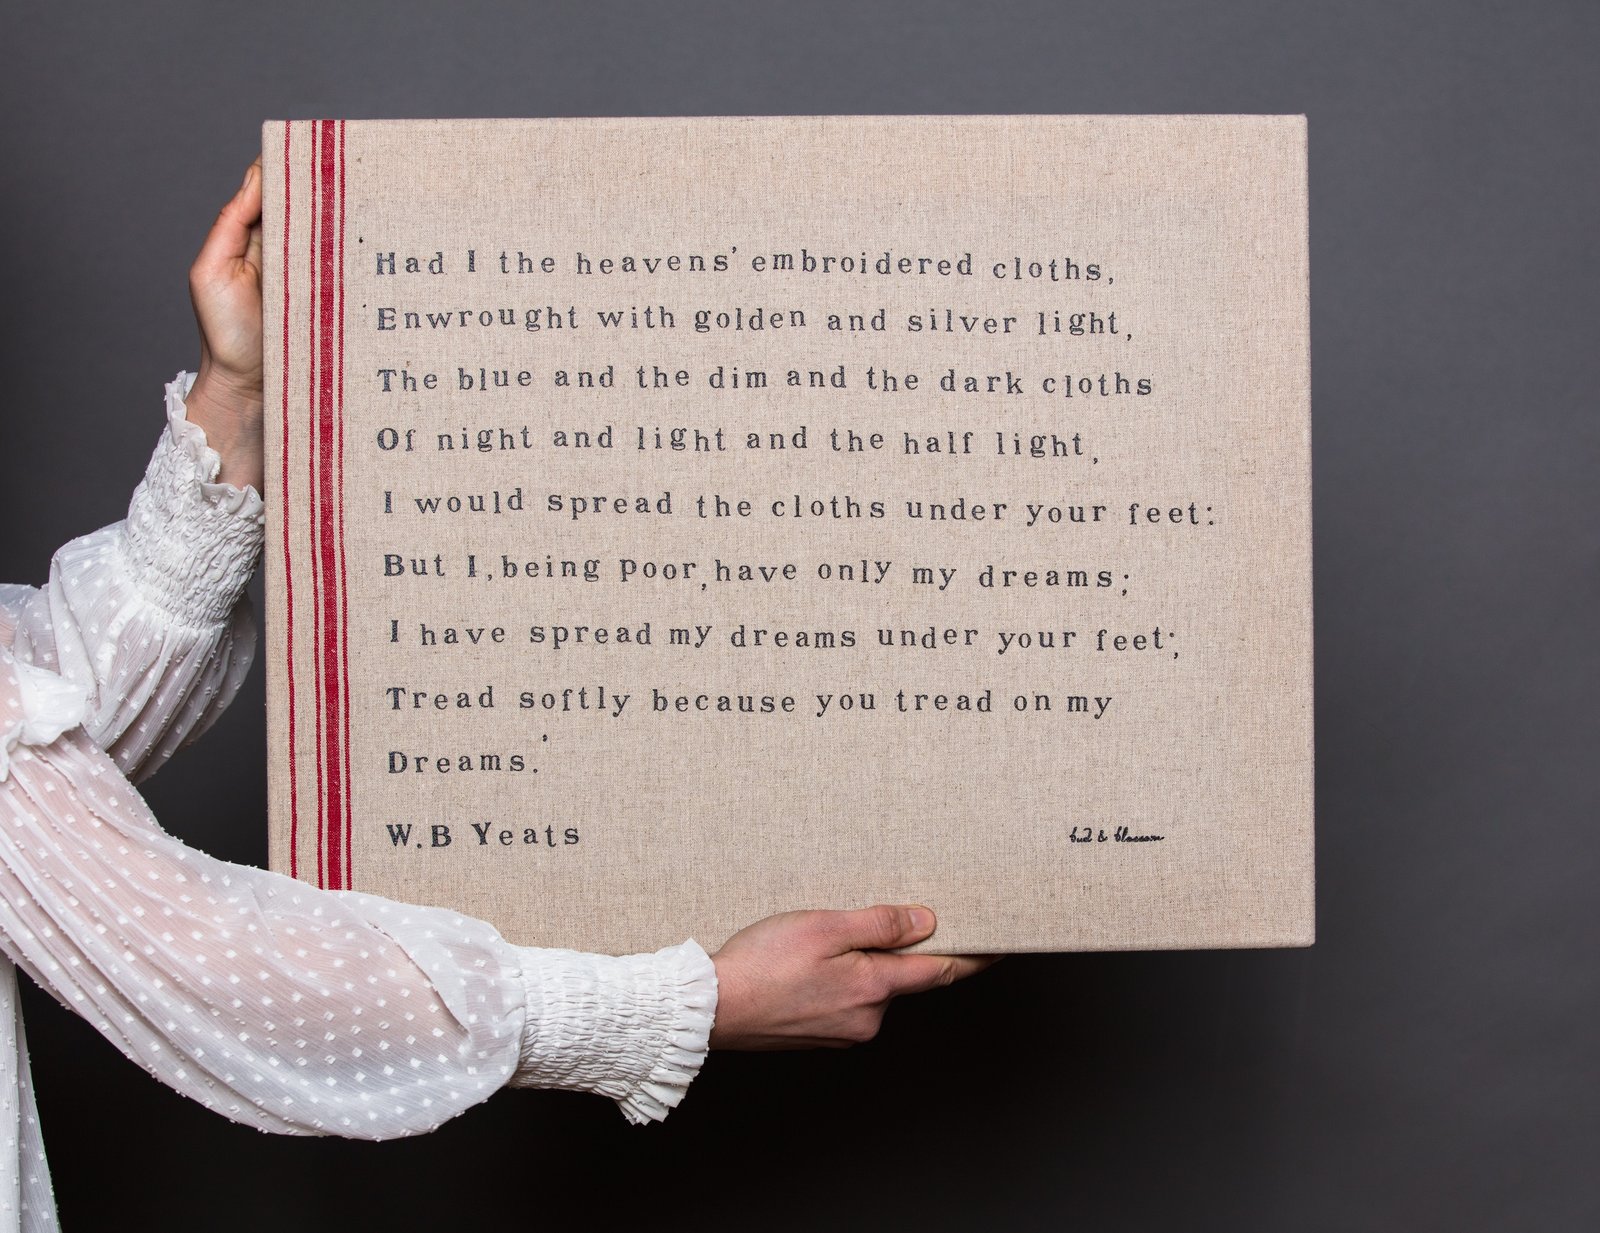 'Had I the heavens' embroidered cloths,
'Enwrought with golden and silver light,
The blue and the dim and the dark cloths
Of night and light and the half light,
I would spread the cloths under your feet:
But I, being poor, have only my dreams;
I have spread my dreams under your feet;
Tread softly because you tread on my
Dreams.'
W.B Yeats
bud & blossom